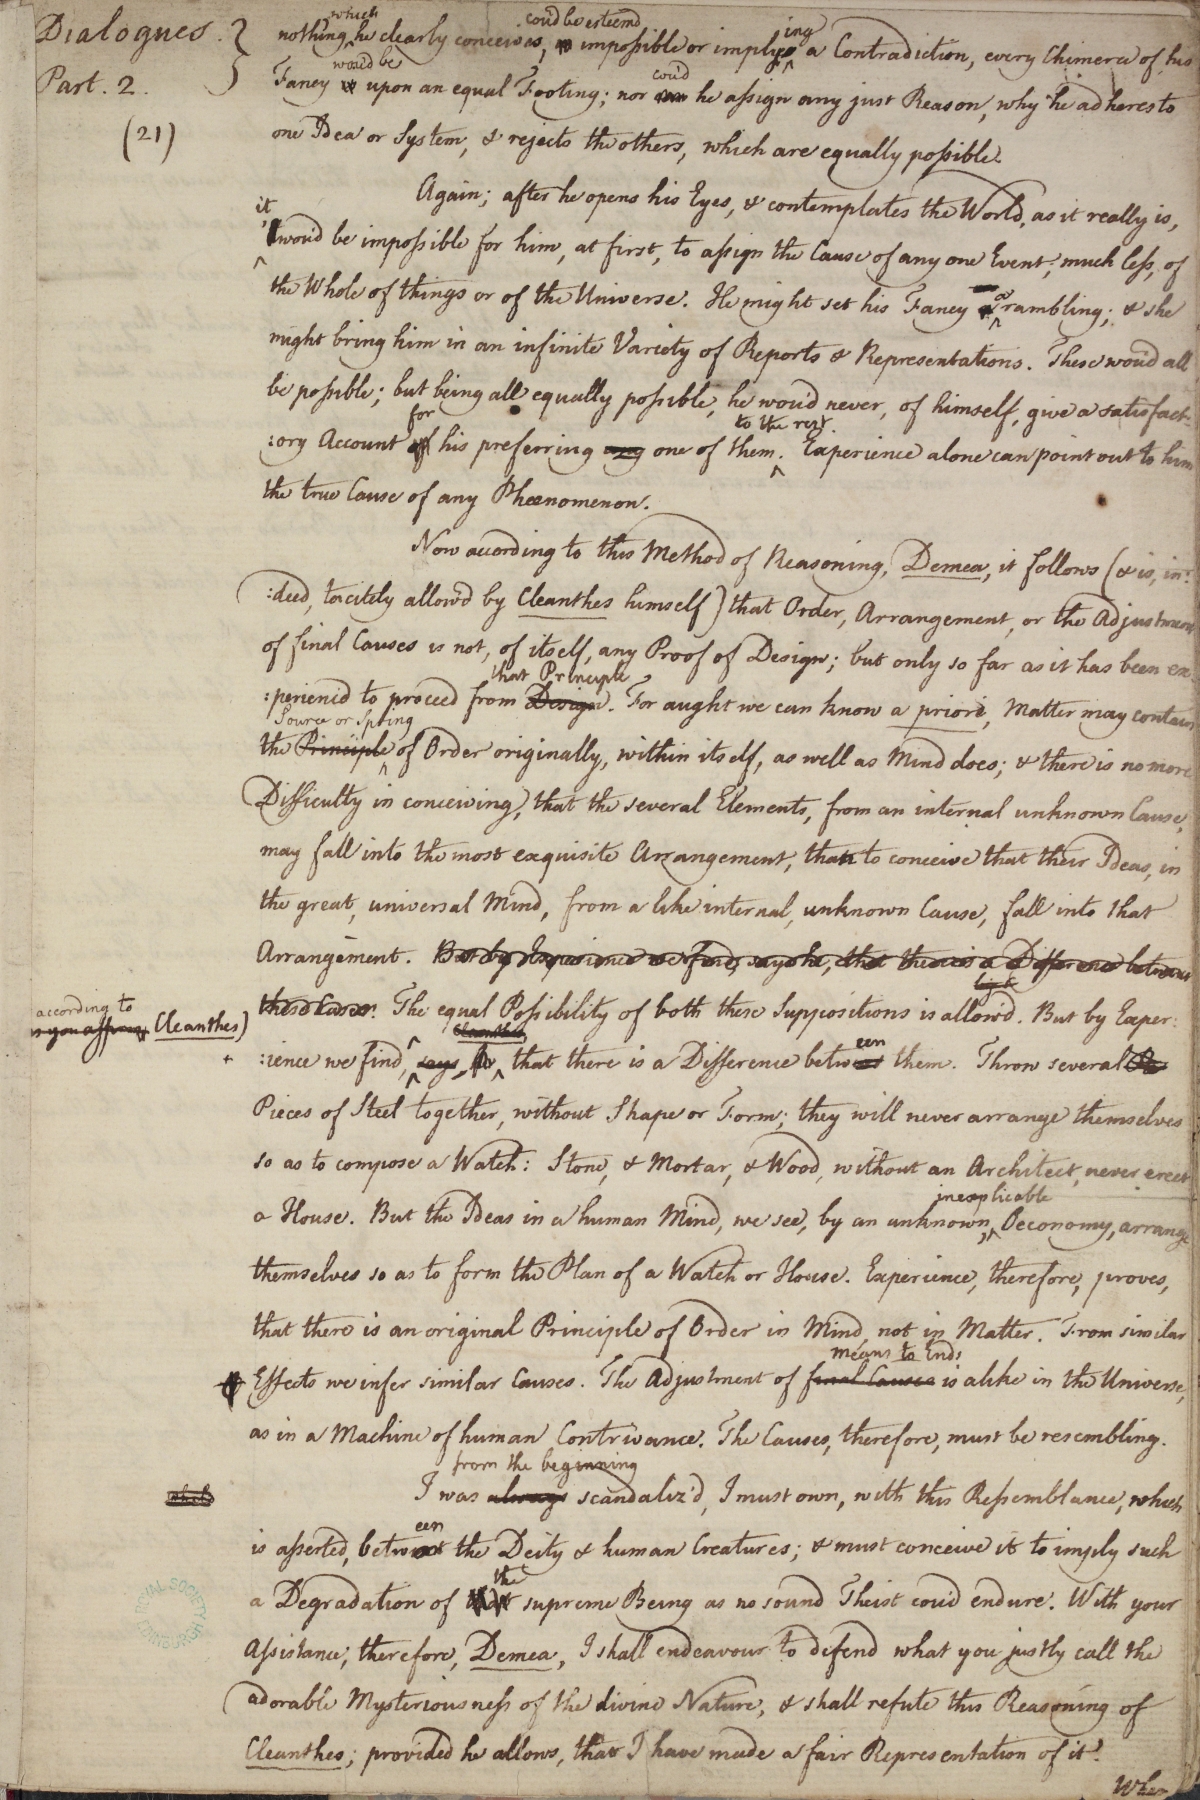 Dialogues.
Part. 2.
(21)
which coud be esteemd ing
nothing he clearly conceives, impossible or implying a Contradiction, every Chimera of his
woud be coud
Fancy upon an equal Footing; nor he assign any just Reason, why he adheres to
one Idea or System, & rejects the others, which are equally possible.
Again; after he opens his Eyes, & contemplates the World, as it really is,
it
woud be impossible for him, at first, to assign the Cause of any one Event; much less, of
the Whole of things or of the Universe. He might set his Fancy a rambling; & she
might bring him in an infinite Variety of Reports & Representations. These woud all
be possible; but being all equally possible, he woud never, of himself, give a satisfact-
for to the rest.
:ory Account of his preferring any one of them. Experience alone can point out to him
the true Cause of any Phœnomenon.
Now according to this Method of Reasoning, Demea, it follows (& is, in:
:deed, tacitely allowd by Cleanthes himself) that Order, Arrangement, or the Adjustment
of final Causes is not, of itself, any Proof of Design; but only so far as it has been ex:
that Principle
:perienc'd to proceed from Design. For aught we can know a priori, Matter may contain
Source or Spring
the Principle of Order originally, within itself, as well as Mind does; & there is no more
Difficulty in conceiving, that the several Elements, from an internal unknown Cause,
may fall into the most exquisite Arrangement, than to conceive that their Ideas, in
the great, universal Mind, from a like internal, unknown Cause, fall into that
Arrangement. But by Experience we find, says he, that there is a Difference between
these Cases. The equal Possibility of both these Suppositions is allow'd. But by Exper:
according to
Cleanthes)
Cleanthes een
:ience we find, says he, that there is a Difference betwixt them. Throw several
Pieces of Steel together, without Shape or Form; they will never arrange themselves
so as to compose a Watch: Stone, & Mortar, & Wood, without an Architect, never erect
inexplicable
a House. But the Ideas in a human Mind, we see, by an unknown, Oeconomy, arrange
themselves so as to form the Plan of a Watch or House. Experience, therefore, proves,
that there is an original Principle of Order in Mind, not in Matter. From similar
means to Ends
Effects we infer similar Causes. The Adjustment of final Causes is alike in the Universe,
as in a Machine of human Contrivance. The Causes, therefore, must be resembling.
from the beginning
I was always scandaliz'd, I must own, with this Resemblance, which
een
is asserted, betwixt the Deity & human Creatures; & must conceive it to imply such
the
a Degradation of that supreme Being as no sound Theist coud endure. With your
Assistance, therefore, Demea, I shall endeavour to defend what you justly call the
adorable Mysteriousness of the divine Nature, & shall refute this Reasoning of
Cleanthes; provided he allows, that I have made a fair Representation of it.
When